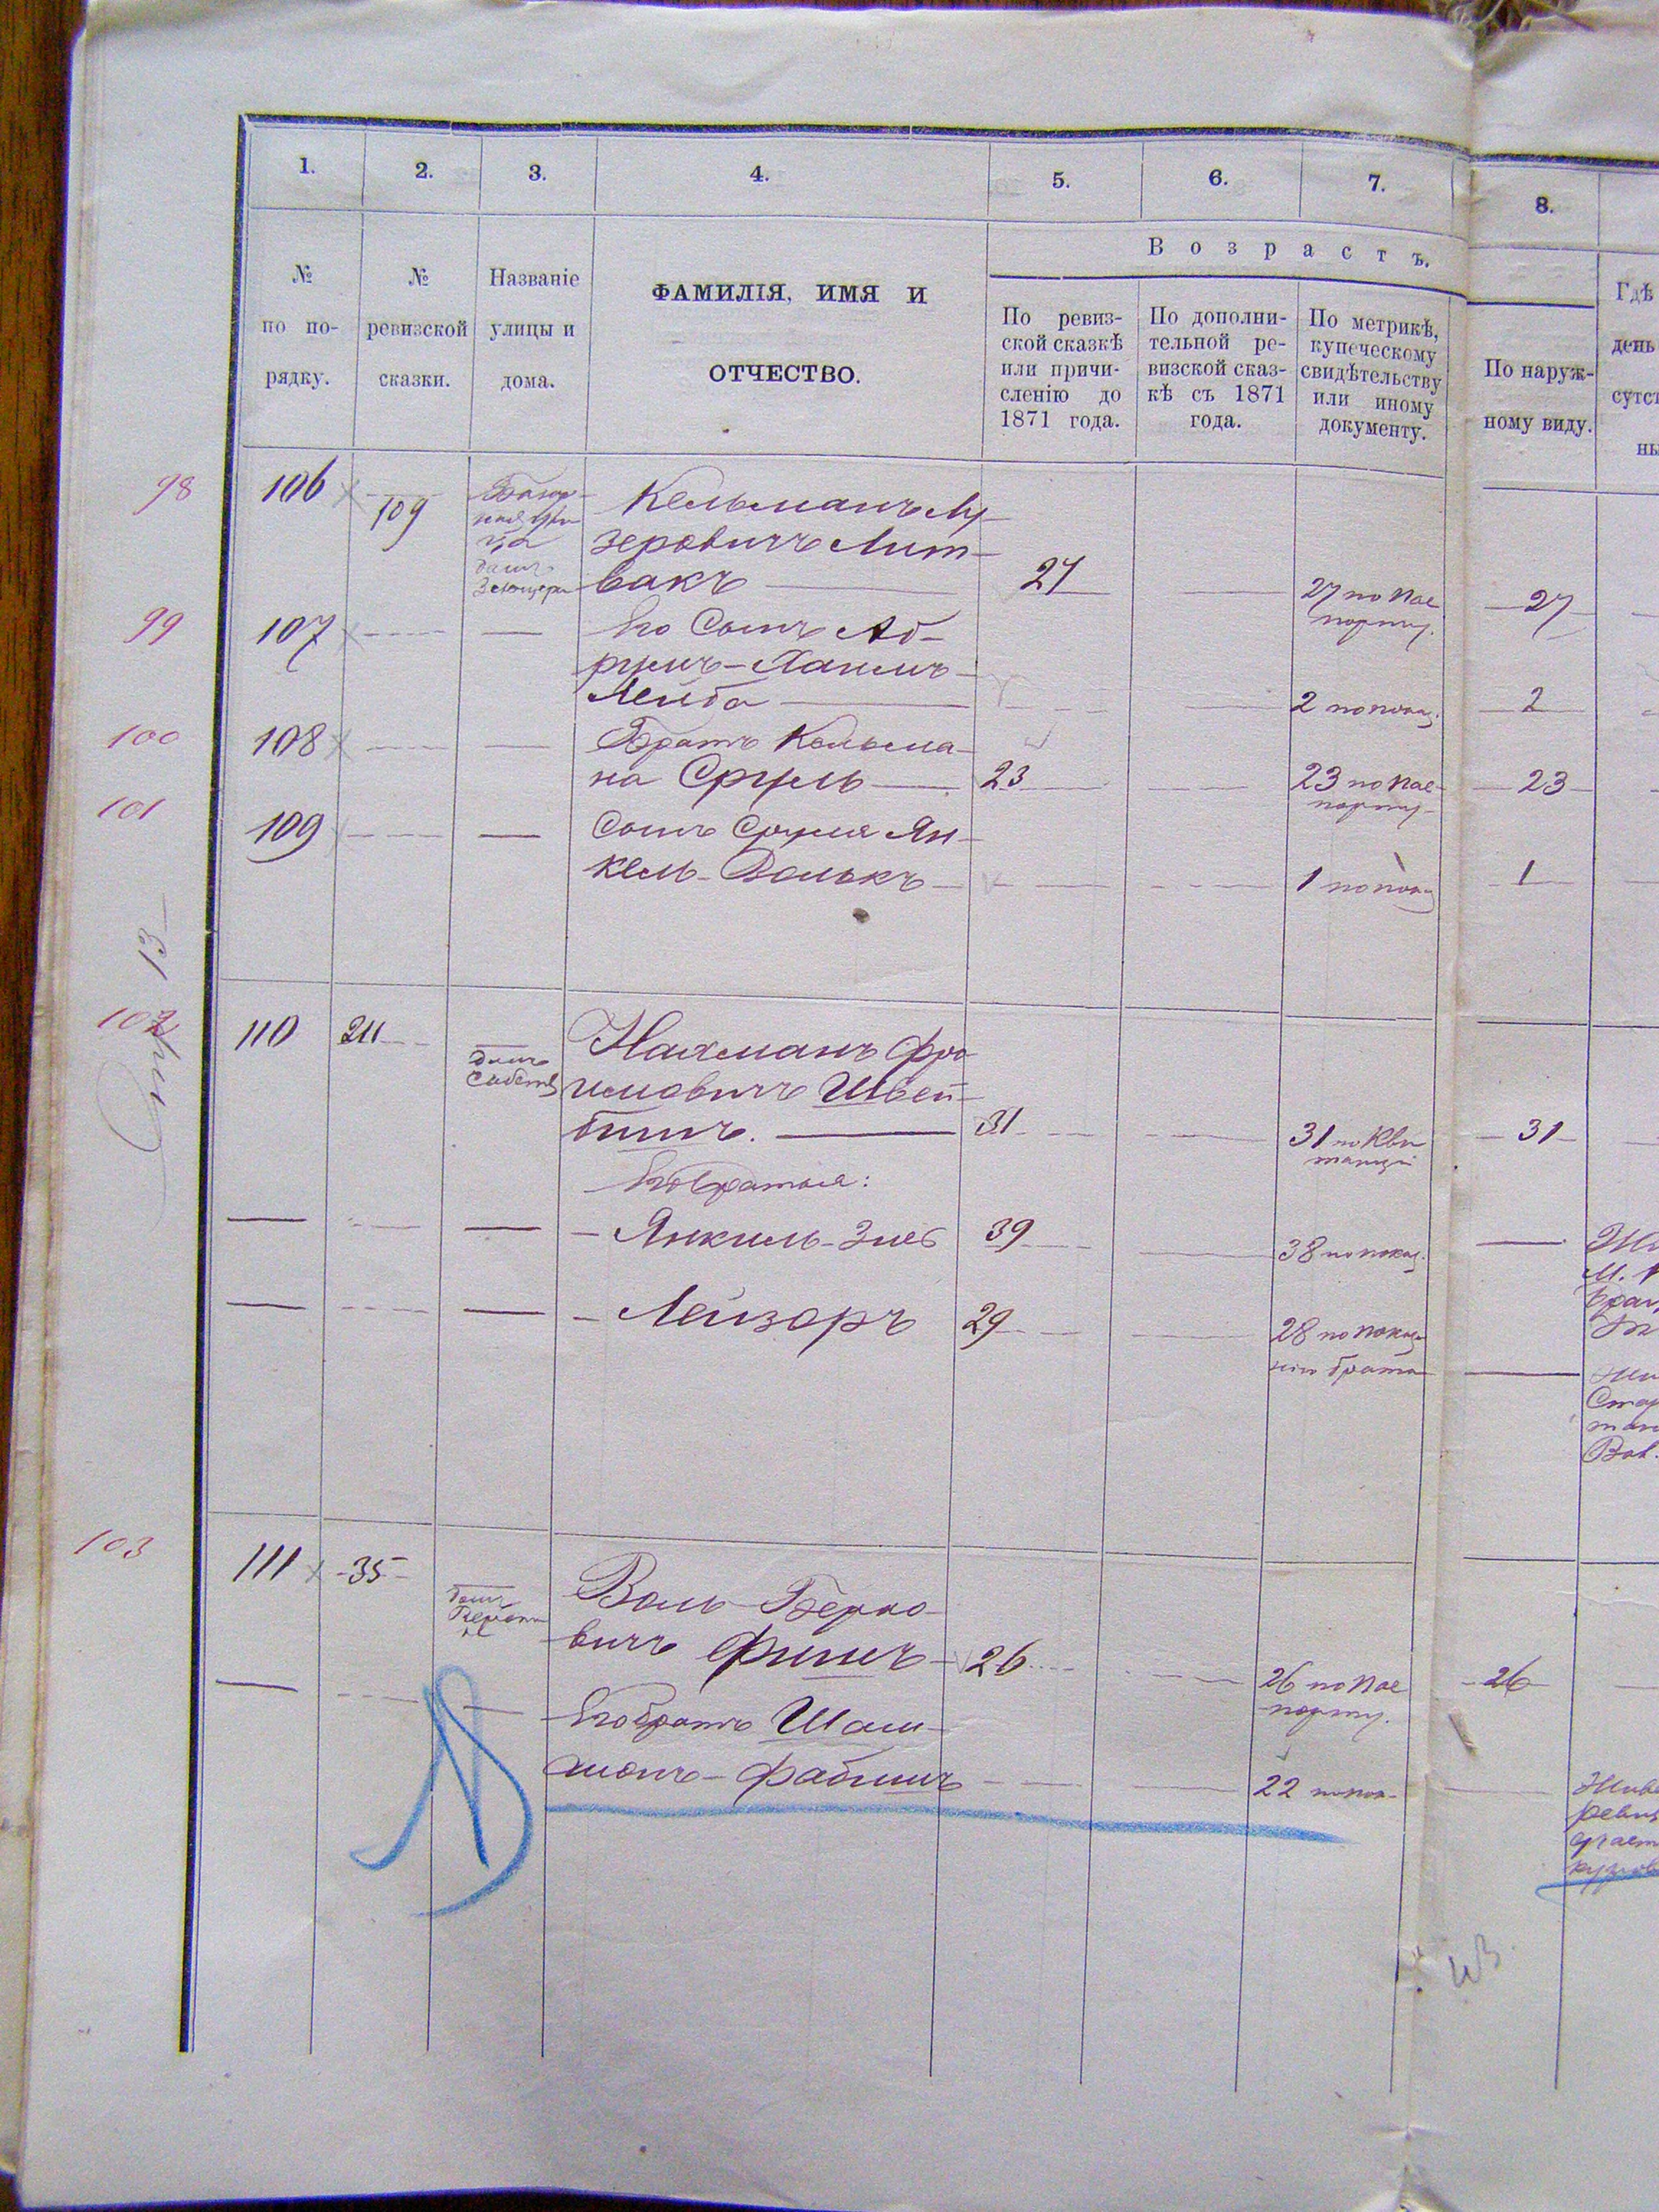 1. 2. 3. 4. 5. 6. 7. 8.
Возрастъ.
№ по по-рядку.
№ ревизской сказки.
Названіе улицы и дома.
ФАМИЛІЯ, ИМЯ И
ОТЧЕСТВО.
По ревиз-
ской сказкѣ
или причи-
сленію до
1871 года.
По дополни-
тельной ре-
визской сказ-
кѣ съ 1871
года.
По метрикѣ,
купеческому
свидѣтельству
или иному
документу.
По наруж-
ному виду.
Гдѣ
день
сутст
ны
98 106 109
Кельманъ Лу-
зеровичъ Лит-
вакъ 27 27 по пас
порту. 27
99 107 Его Сынъ Аб-
румъ-Хаимъ-
Лейба 2 по показ. 2
100 108 Братъ Кельма-
на Сруль 23 23 по пас-
порту 23
101 109 Сынъ Сруля Ян-
кель-Волькъ 1 по показ 1
102 110 211 домъ
собств
Нахманъ Фро
имовичъ Швей-
бишъ. 31 31 по Кви
танціи 31
Его братья:
Янкиль-Зиев 39 38 по показ.
Лейзоръ 29 28 по показ
нію брата
103 111 35 домъ
Воль Берко-
вичъ Фишъ 26 26 по пас
порту. 26
Его братъ Шам-
шонъ-Фабишъ 22 по пок